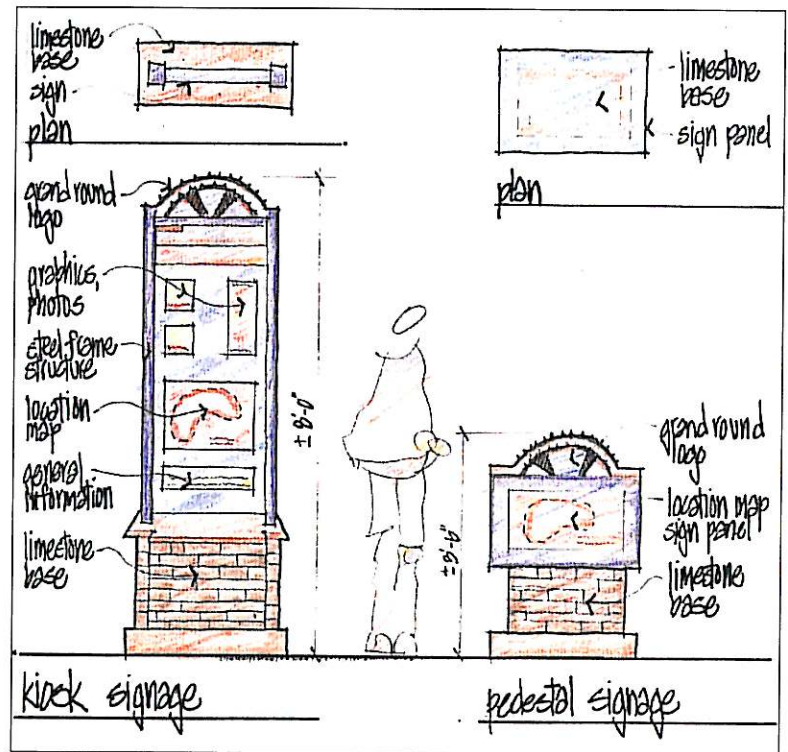 limestone
base
sign
plan
limestone
base
sign panel
plan
grand round
logo
graphics,
photos
steel frame
structure
location
map
general
information
limestone
base
±8'-0"
±3'-6"
grand round
logo
location map
sign panel
limestone
base
kiosk signage
pedestal signage